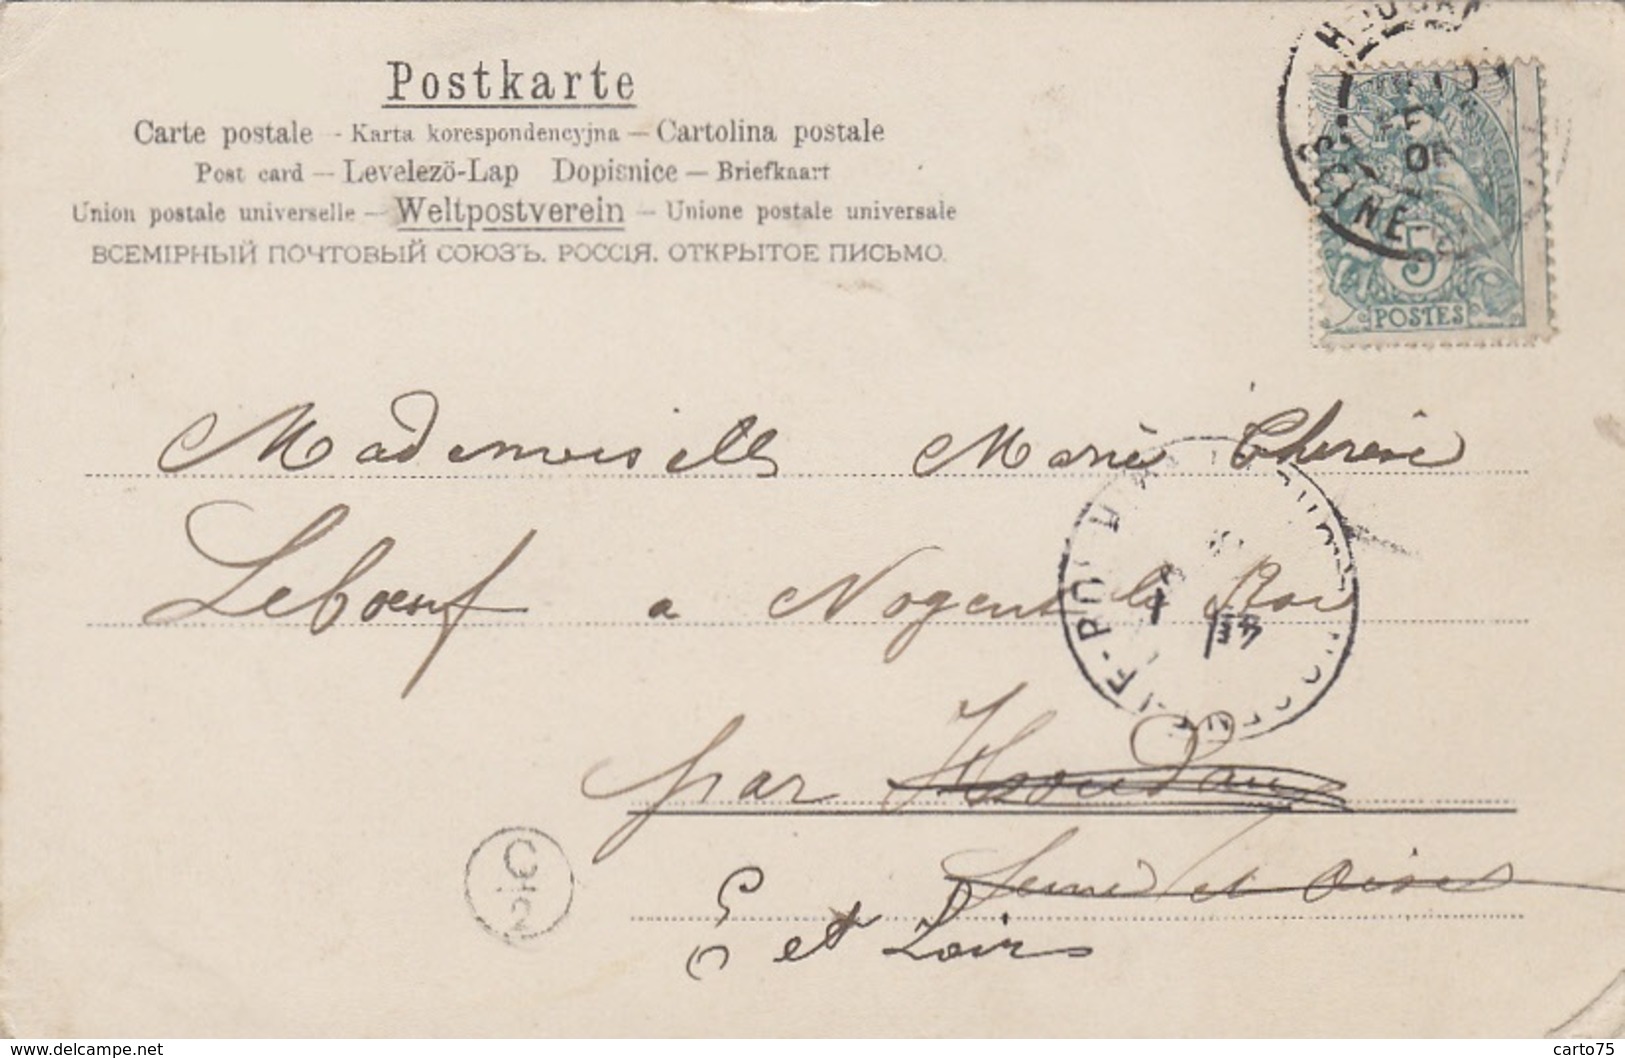 Postkarte
Carte postale - Karta korespondencyjna — Cartolina postale
Post card — Levelezö-Lap Dopisnice — Briefkaart
Union postale universelle — Weltpostverein — Unione postale universale
ВСЕМІРНЫЙ ПОЧТОВЫЙ СОЮЗЪ. РОССІЯ. ОТКРЫТОЕ ПИСЬМО.
5
POSTES
Mademoiselle Marie Therese
Leboeuf a Nogent le Roi
par Houdan
Seine et Oise
E et Loir
delcampe.net
carto75